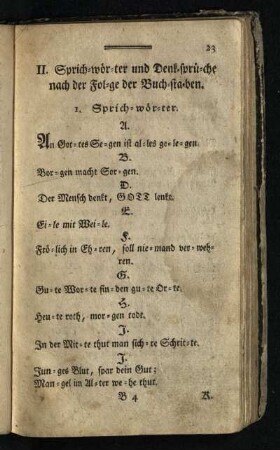 23
II. Sprich⸗wör⸗ter und Denk⸗sprü⸗che
nach der Fol⸗ge der Buch⸗sta⸗ben.
1. Sprich⸗wör⸗ter.
A.
An Got⸗tes Se⸗gen ist al⸗les ge⸗le⸗gen.
B.
Bor⸗gen macht Sor⸗gen.
D.
Der Mensch denkt, GOTT lenkt.
E.
Ei⸗le mit Wei⸗le.
F.
Frö⸗lich in Eh⸗ren, soll nie⸗mand ver⸗weh⸗
ren.
G.
Gu⸗te Wor⸗te fin⸗den gu⸗te Or⸗te.
H.
Heu⸗te roth, mor⸗gen todt.
I.
In der Mit⸗te thut man sich⸗re Schrit⸗te.
J.
Jun⸗ges Blut, spar dein Gut;
Man⸗gel im Al⸗ter we⸗he thut.
B 4
K.